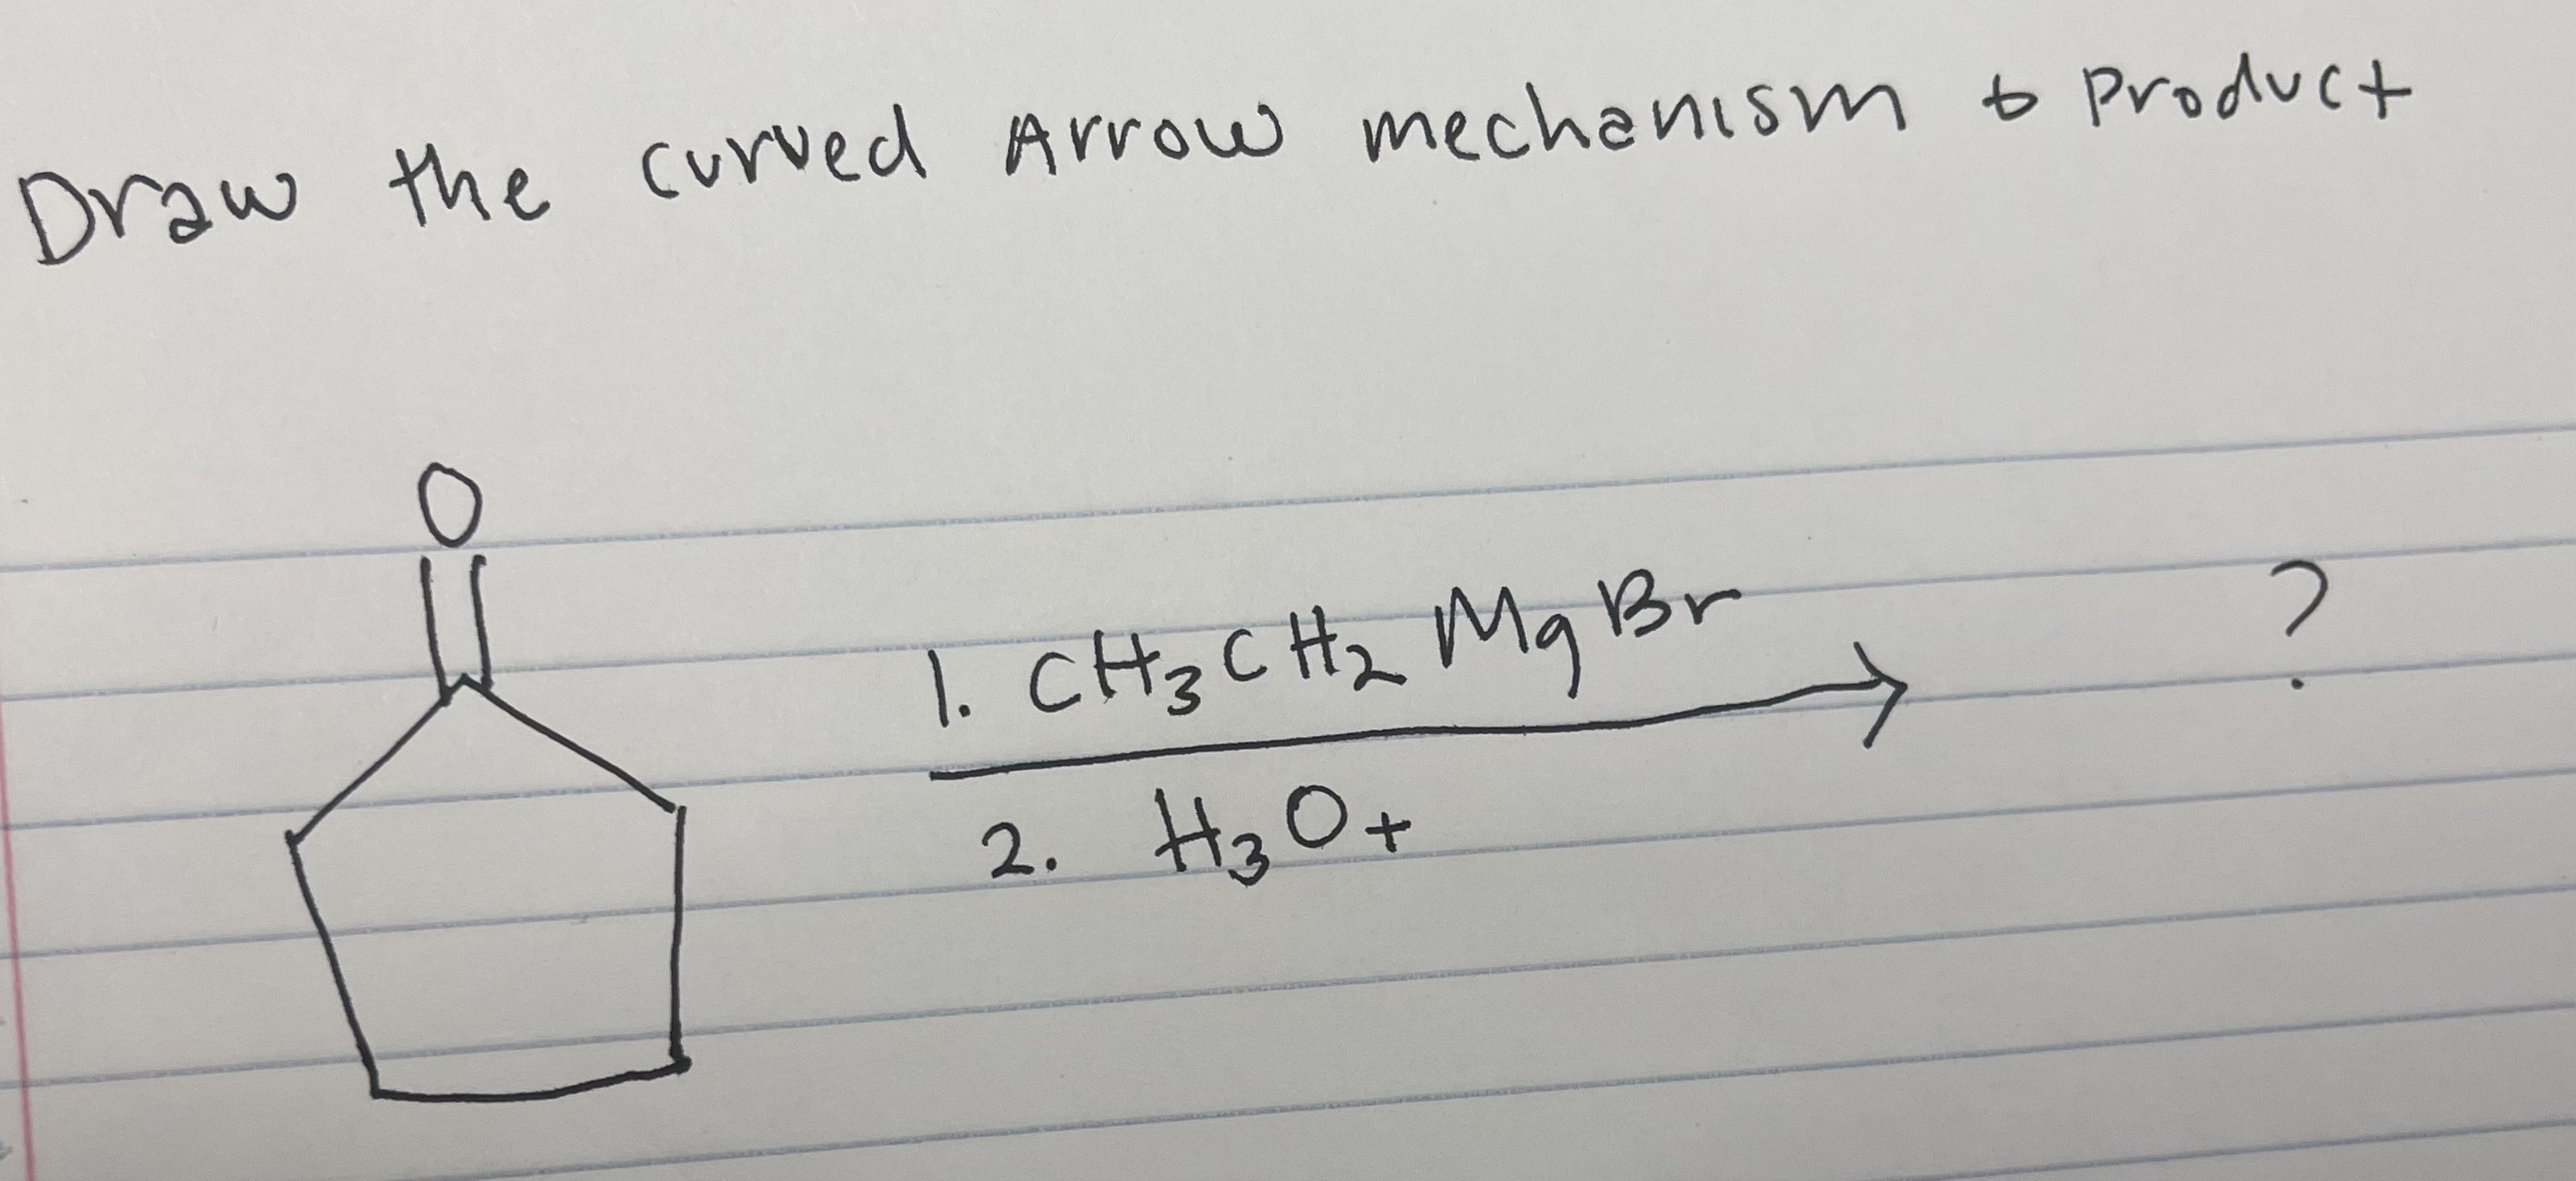 Draw the curved Arrow mechanism & Product
O
1. CH3CH2MgBr
?
2. H3O+